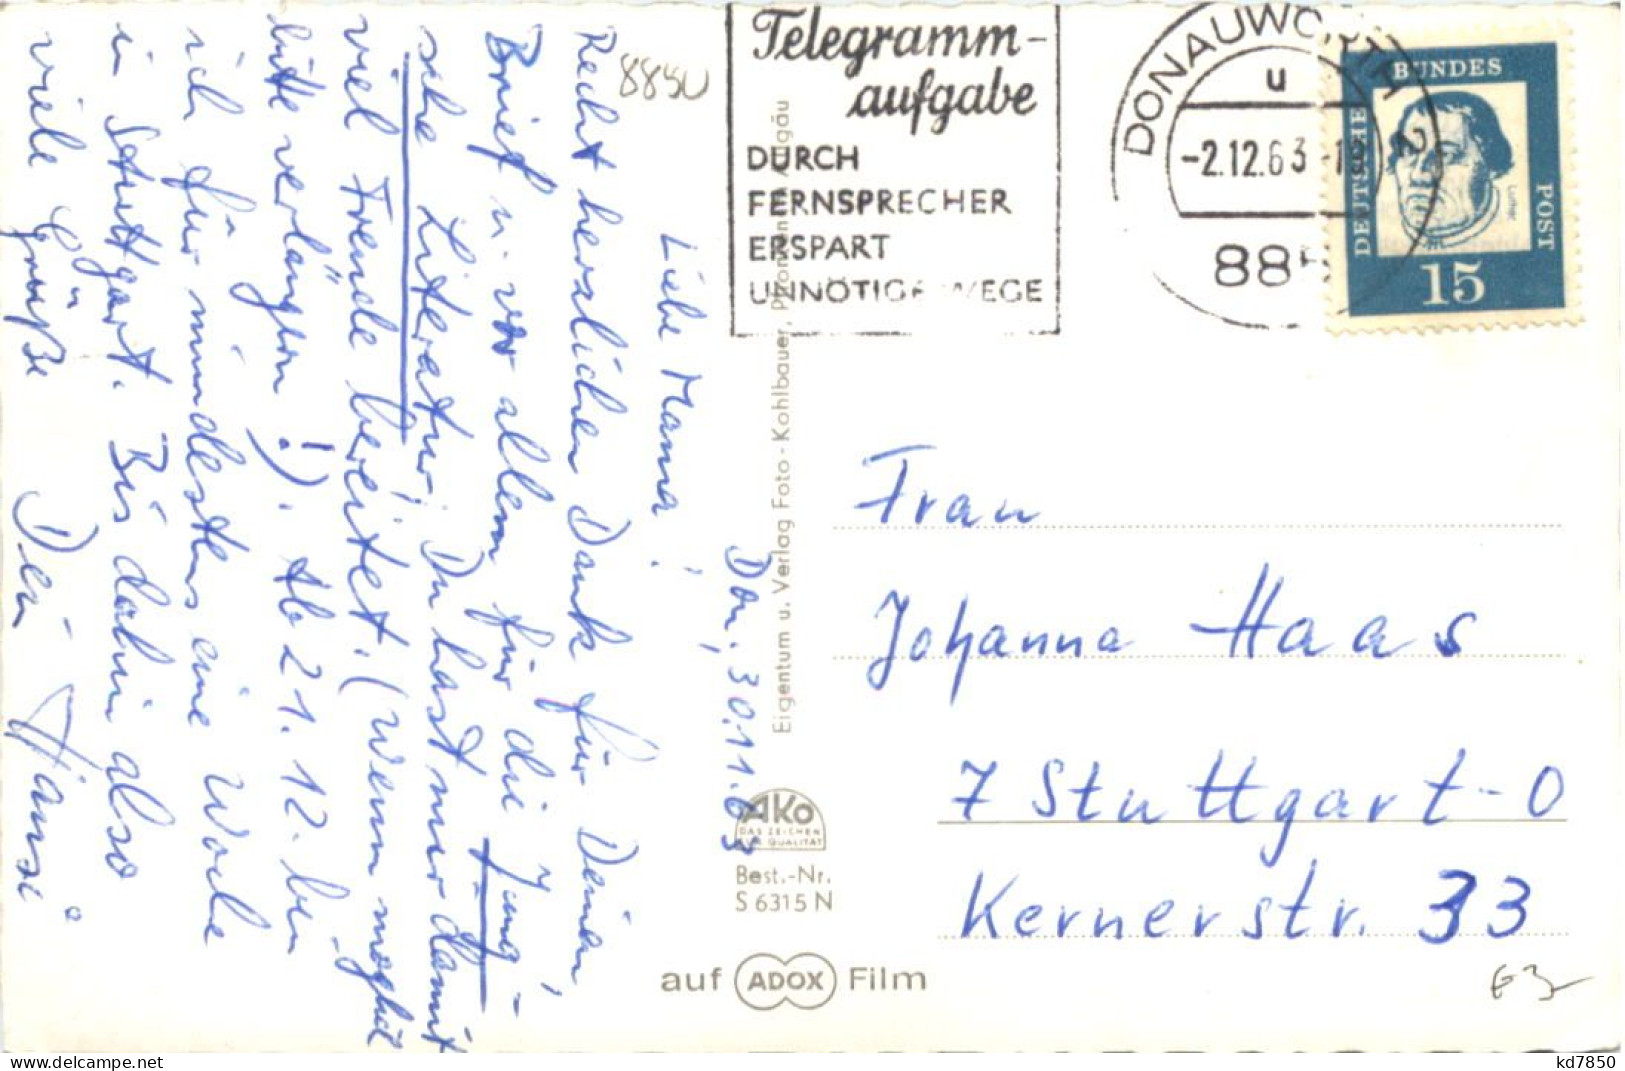 Telegramm-
aufgabe
DURCH
FERNSPRECHER
ERSPART
UNNÖTIGE WEGE
DONAUWÖRTH 2
u
-2.12.63
DEUTSCHE
BUNDES
POST
Luther
15
8850
Don, 30.11.63
Liebe Mama!
Recht herzlichen Dank für Deinen
Brief u. vor allem für die Jung-
sche Literatur; Du hast mir damit
viel Freude bereitet. (Wenn möglich
bitte verlängern!). Ab 21.12. bin
ich für mindestens eine Woche
in Stuttgart. Bis dahin also
viele Grüße Dein Hansi
Eigentum u. Verlag Foto-Kohlbauer, Pfronten/Allgäu
AKo
DAS ZEICHEN
FÜR QUALITÄT
Best.-Nr.
S 6315 N
auf ADOX Film
Frau
Johanna Haas
7 Stuttgart-O
Kernerstr. 33
kd7850